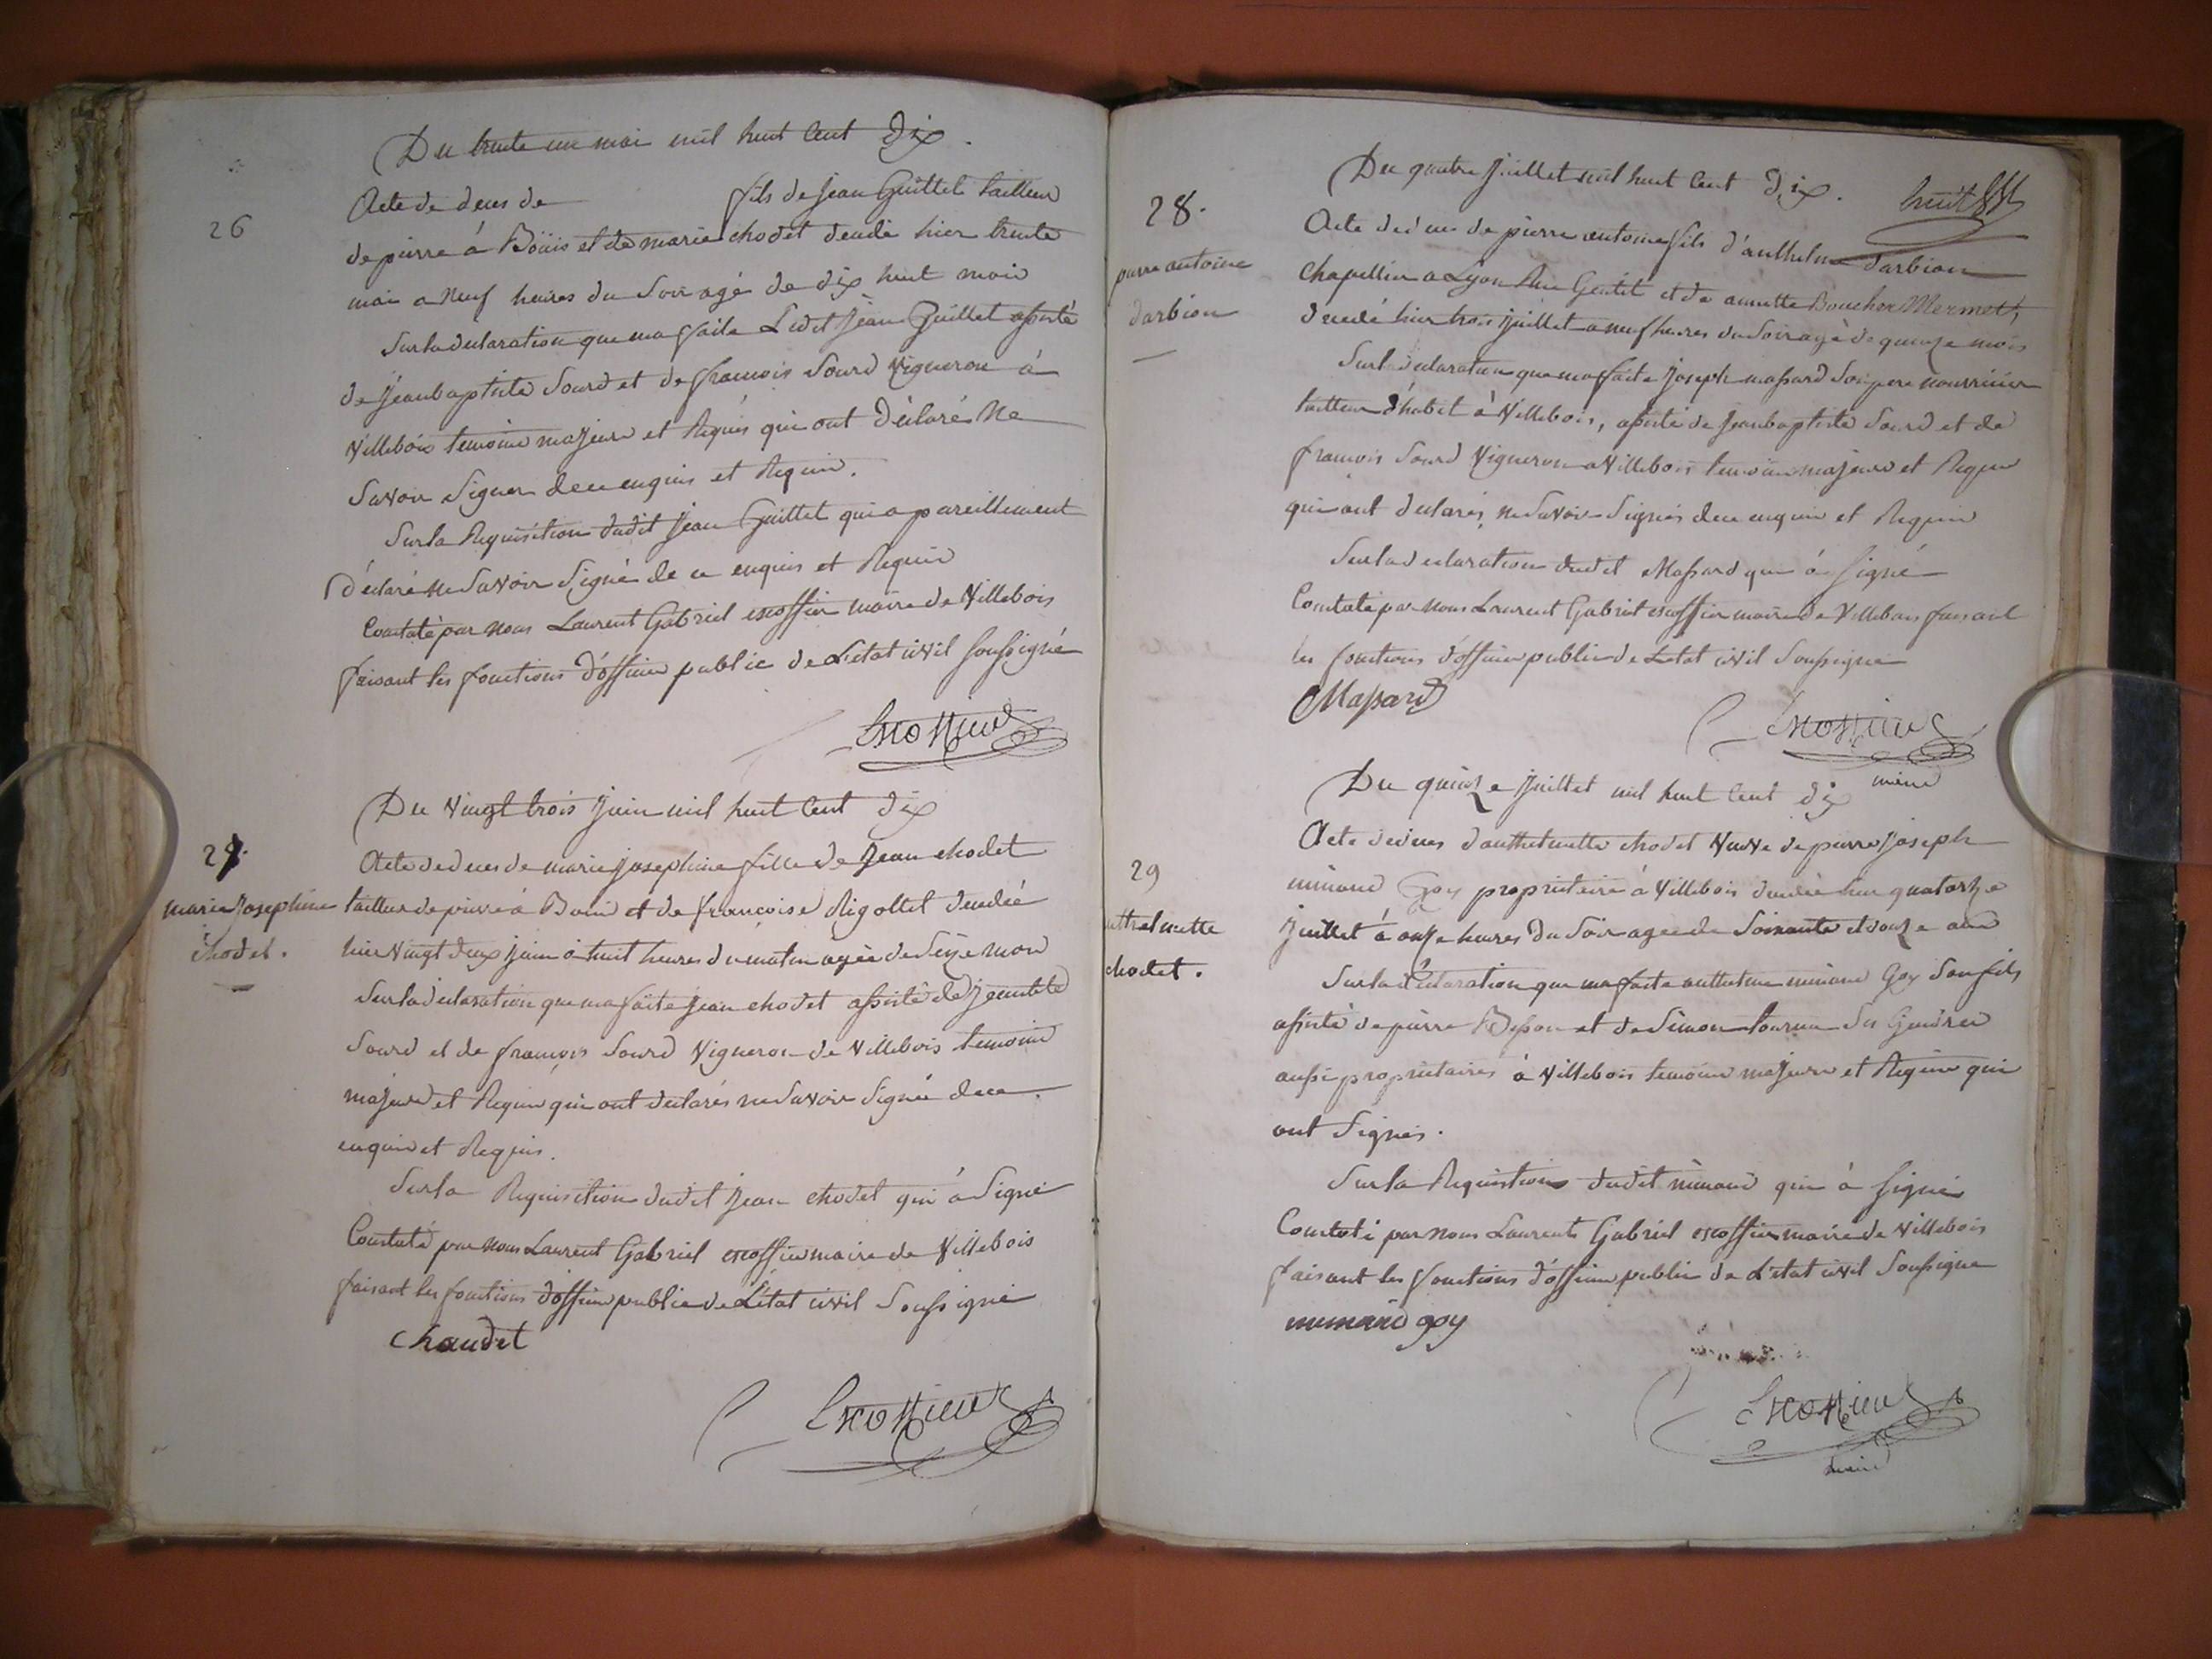 Du trente un mai mil huit cent dix.
26
Acte de deces de fils de jean Guillet tailleur
de pierre à Boüis et de marie chodet decedé hier trente
mai a neuf heures du soir agé de dix huit mois
Sur la declaration que ma faite Ledit jean Guillet assisté
de jean baptiste Sourd et de francois Sourd vigneron à
villebois temoins majeurs et Requis qui ont déclaré ne
savoir signer de ce enquis et Requis.
Sur la Requisition dudit jean Guillet qui a pareillement
déclaré ne savoir signé de ce enquis et Requis
Constaté par nous Laurent Gabriel escoffier maire de villebois
faisant les fonctions d'officier public de L'etat civil soussigné
Escoffier
Du vingt trois juin mil huit cent dix
27.
marie josephine
chodet.
Acte de deces de marie josephine fille de jean chodet
tailleur de pierre à Bouis et de francoise Rigollet decedée
hier vingt deux juin à huit heures du matin agée de seize mois
Sur la declaration que ma faite jean chodet assisté de jean bte
Sourd et de francois Sourd vigneron de villebois temoins
majeurs et Requis qui ont declarés ne savoir signé de ce
enquis et Requis.
Sur la Requisition dudit jean chodet qui à signé
Constaté par nous Laurent Gabriel escoffier maire de villebois
faisant les fonctions d'officier public de L'état civil soussigné
chaudet
Escoffier
Du quatre juillet mil huit cent dix. huit
28.
pierre antoine
darbion
Acte de deces de pierre antoine fils d'anthelme darbion
chapellier a Lyon Rue Gentil et de annette Boucher Mermet,
decedé hier trois juillet a neuf heures du soir agé de quinze mois
Sur la declaration que ma faite joseph massard son pere nourricier
tailleur d'habit à villebois, assisté de jean baptiste Sourd et de
francois Sourd vigneron a villebois temoins majeurs et Requis
qui ont declarés, ne savoir signés de ce enquis et Requis
Sur la declaration dudit Massard qui à signé
Constaté par nous Laurent Gabriel escoffier maire de villebois faisant
les fonctions d'officier public de L'etat civil soussigné
Massard
Escoffier
Du quinze juillet mil huit cent dix
29
anthelmette
chodet.
Acte de deces d'anthelmette chodet veuve de pierre joseph
minand Goy proprietaire à villebois decedée hier quatorze
juillet à onze heures du soir agée de soixante et douze ans
Sur la déclaration que ma faite anthelme minand Goy son fils
assisté de pierre Besson et de Simon tournu ses Gendres
aussi proprietaires à villebois temoins majeurs et Requis qui
ont signés.
Sur la Requisition dudit minand qui à signé
Constaté par nous Laurent Gabriel escoffier maire de villebois
faisant les fonctions d'officier public de L'etat civil soussigné
minand goy
Escoffier